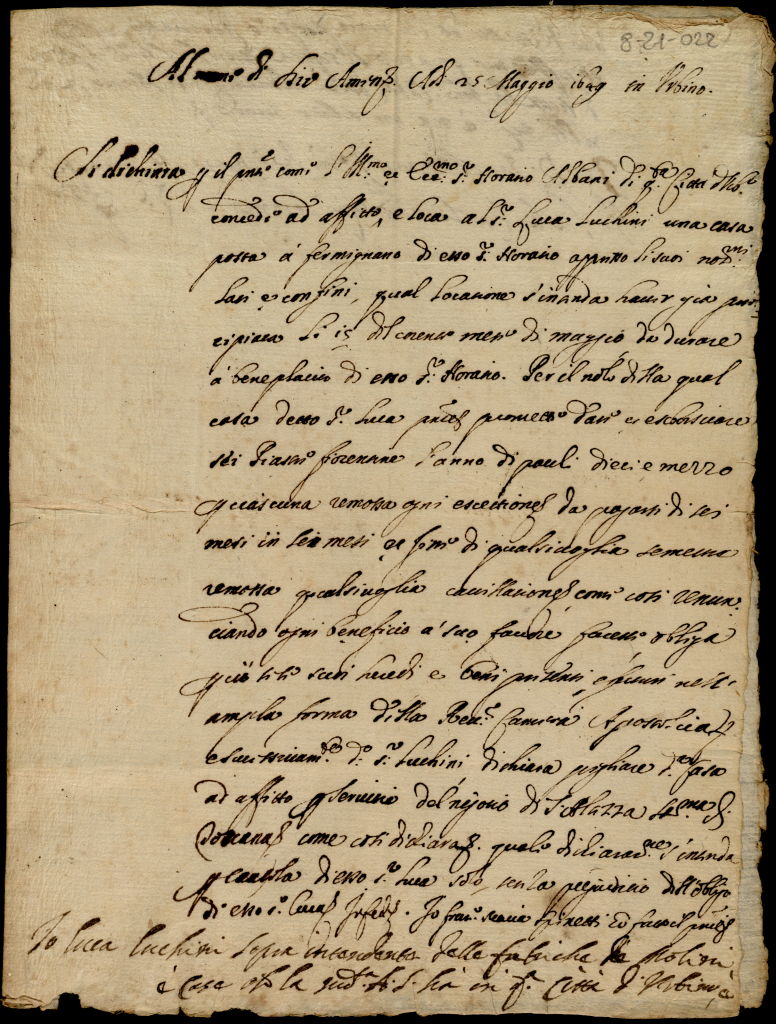 8-21-022
Al nome di Dio Amen. Adi 25 Maggio 1649 in Urbino.
Si dichiara p il pnte come l'Ill.mo et Ecc.mo S.r Horatio Albani di q.ta Città d'Urb.o
concede ad affitto, e loca al S.r Luca Luchini una casa
posta à fermignano di esso S.r Horatio appresso li suoi
lati e confini, qual locatione s'intenda haver già prin
cipiata li 15 del corrente mese di maggio da durare
à beneplacito di esso S.r Horatio. Per il nolo di d.a qual
casa detto S.r Luca promette dare et esborsciare
sei Piastre fiorentine l'anno di pauli dieci e mezzo
p ciascuna remossa ogni eccettione da pagarsi di sei
mesi in sei mesi et fine di qualsivoglia semestre
remossa qualsivoglia cavillatione come così renun
ciando ogni beneficio à suo favore facesse obliga
suoi heredi e beni presenti, e futuri nell'
ampla forma della Rev. Camera Apostolica
e successivam.te d.o S.r Luchini dichiara pigliare d.a Casa
ad affitto p servitio del negotio di S. Altezza Ser.ma di
Toscana come così dichiara. quale dichiarat.ne s'intenda
p cautela di esso S.r Luca solo, senza pregiuditio dell'obligo
di esso S.r Luca In fede. Io fran.co Maria Spinetti ho fatto il pnte
Io luca luchini sopra intendente delle fabriche de Molini
è Case che la sud.a A. S. hà in q.a Città d'Urbino, è